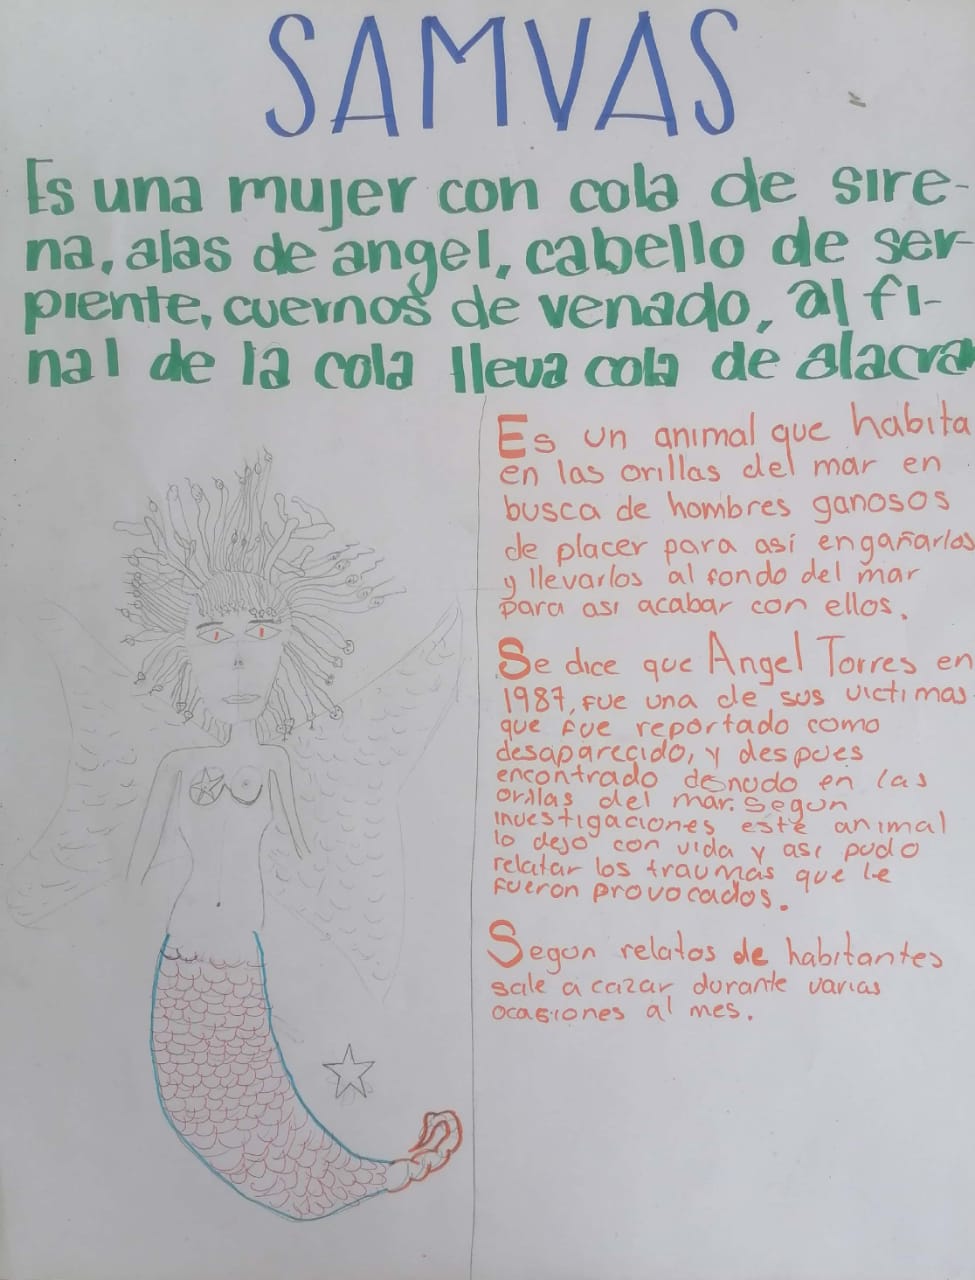 SAMVAS
Es una mujer con cola de sire-
na, alas de angel, cabello de ser-
piente, cuernos de venado, al fi-
nal de la cola lleva cola de alacra
Es un animal que habita
en las orillas del mar en
busca de hombres ganosos
de placer para así engañarlos
y llevarlos al fondo del mar
para asi acabar con ellos.
Se dice que Angel Torres en
1987, fue una de sus victimas
que fue reportado como
desaparecido, y despues
encontrado desnudo en las
orillas del mar. Segun
investigaciones este animal
lo dejo con vida y asi pudo
relatar los traumas que le
fueron provocados.
Segun relatos de habitantes
sale a cazar durante varias
ocasiones al mes.